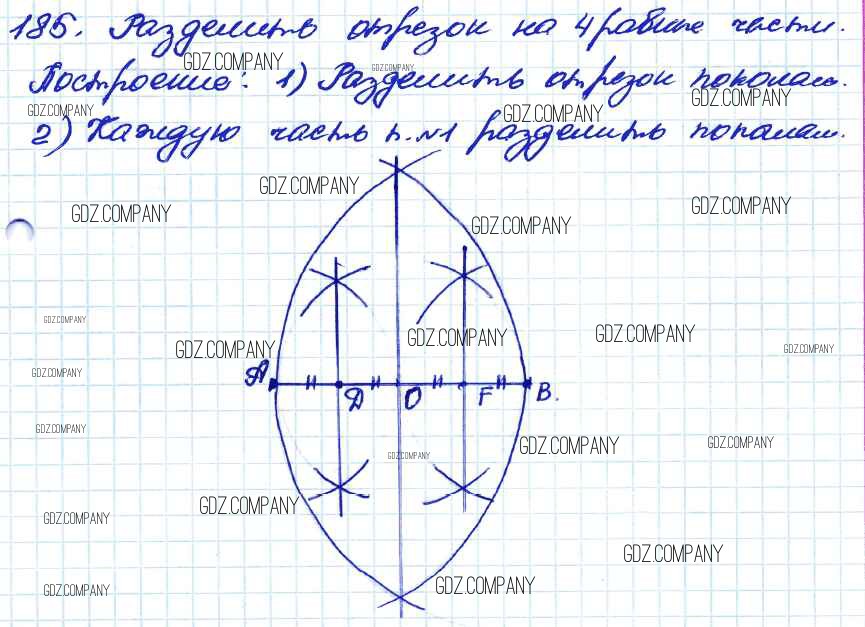 185. Разделить отрезок на 4 равные части.
GDZ.COMPANY GDZ.COMPANY
Построение: 1) Разделить отрезок пополам.
GDZ.COMPANY GDZ.COMPANY GDZ.COMPANY
2) Каждую часть п. №1 разделить пополам.
GDZ.COMPANY
GDZ.COMPANY GDZ.COMPANY
GDZ.COMPANY
GDZ.COMPANY
GDZ.COMPANY GDZ.COMPANY
GDZ.COMPANY GDZ.COMPANY
GDZ.COMPANY
A D O F B.
GDZ.COMPANY
GDZ.COMPANY GDZ.COMPANY
GDZ.COMPANY
GDZ.COMPANY
GDZ.COMPANY
GDZ.COMPANY
GDZ.COMPANY GDZ.COMPANY